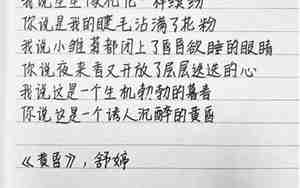 你说是我的睫毛沾满了花粉
我说小雏菊都闭上了昏昏欲睡的眼睛
你说夜来香又开放了层层迭迭的心
我说这是一个生机勃勃的暮春
你说这是一个诱人沉醉的黄昏
《黄昏》，舒婷